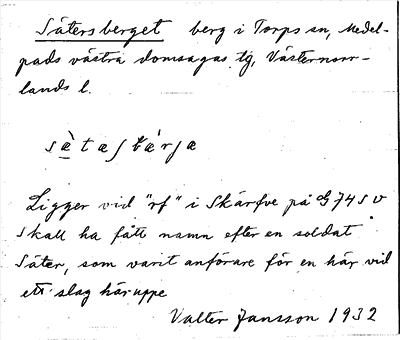 Sätersberget berg i Torps sn, Medel-
pads västra domsagas tg, Västernorr-
lands l.
Ligger vid "rf" i Skärfve på G 74 S V
Skall ha fått namn efter en soldat
Säter, som varit anförare för en här vid
ett slag häruppe
Valter Jansson 1932